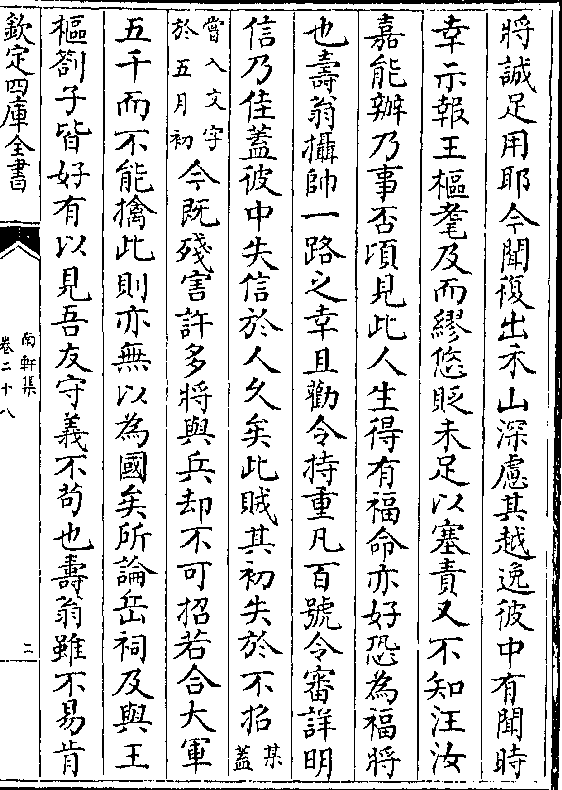 將誠足用耶今聞復出禾山深慮其越逸彼中有聞時
幸示報王樞耄及而繆悠貶未足以塞責又不知汪汝
嘉能辦乃事否頃見此人生得有福命亦好恐為福將
也壽翁攝帥一路之幸且勸令持重凡百號令審詳明
信乃佳蓋彼中失信於人久矣此賊其初失於不招某蓋
嘗入文字於五月初今既殘害許多將與兵却不可招若合大軍
五千而不能擒此則亦無以為國矣所論岳祠及與王
樞劄子皆好有以見吾友守義不苟也壽翁雖不易肯
欽定四庫全書
南軒集
卷二十八
二